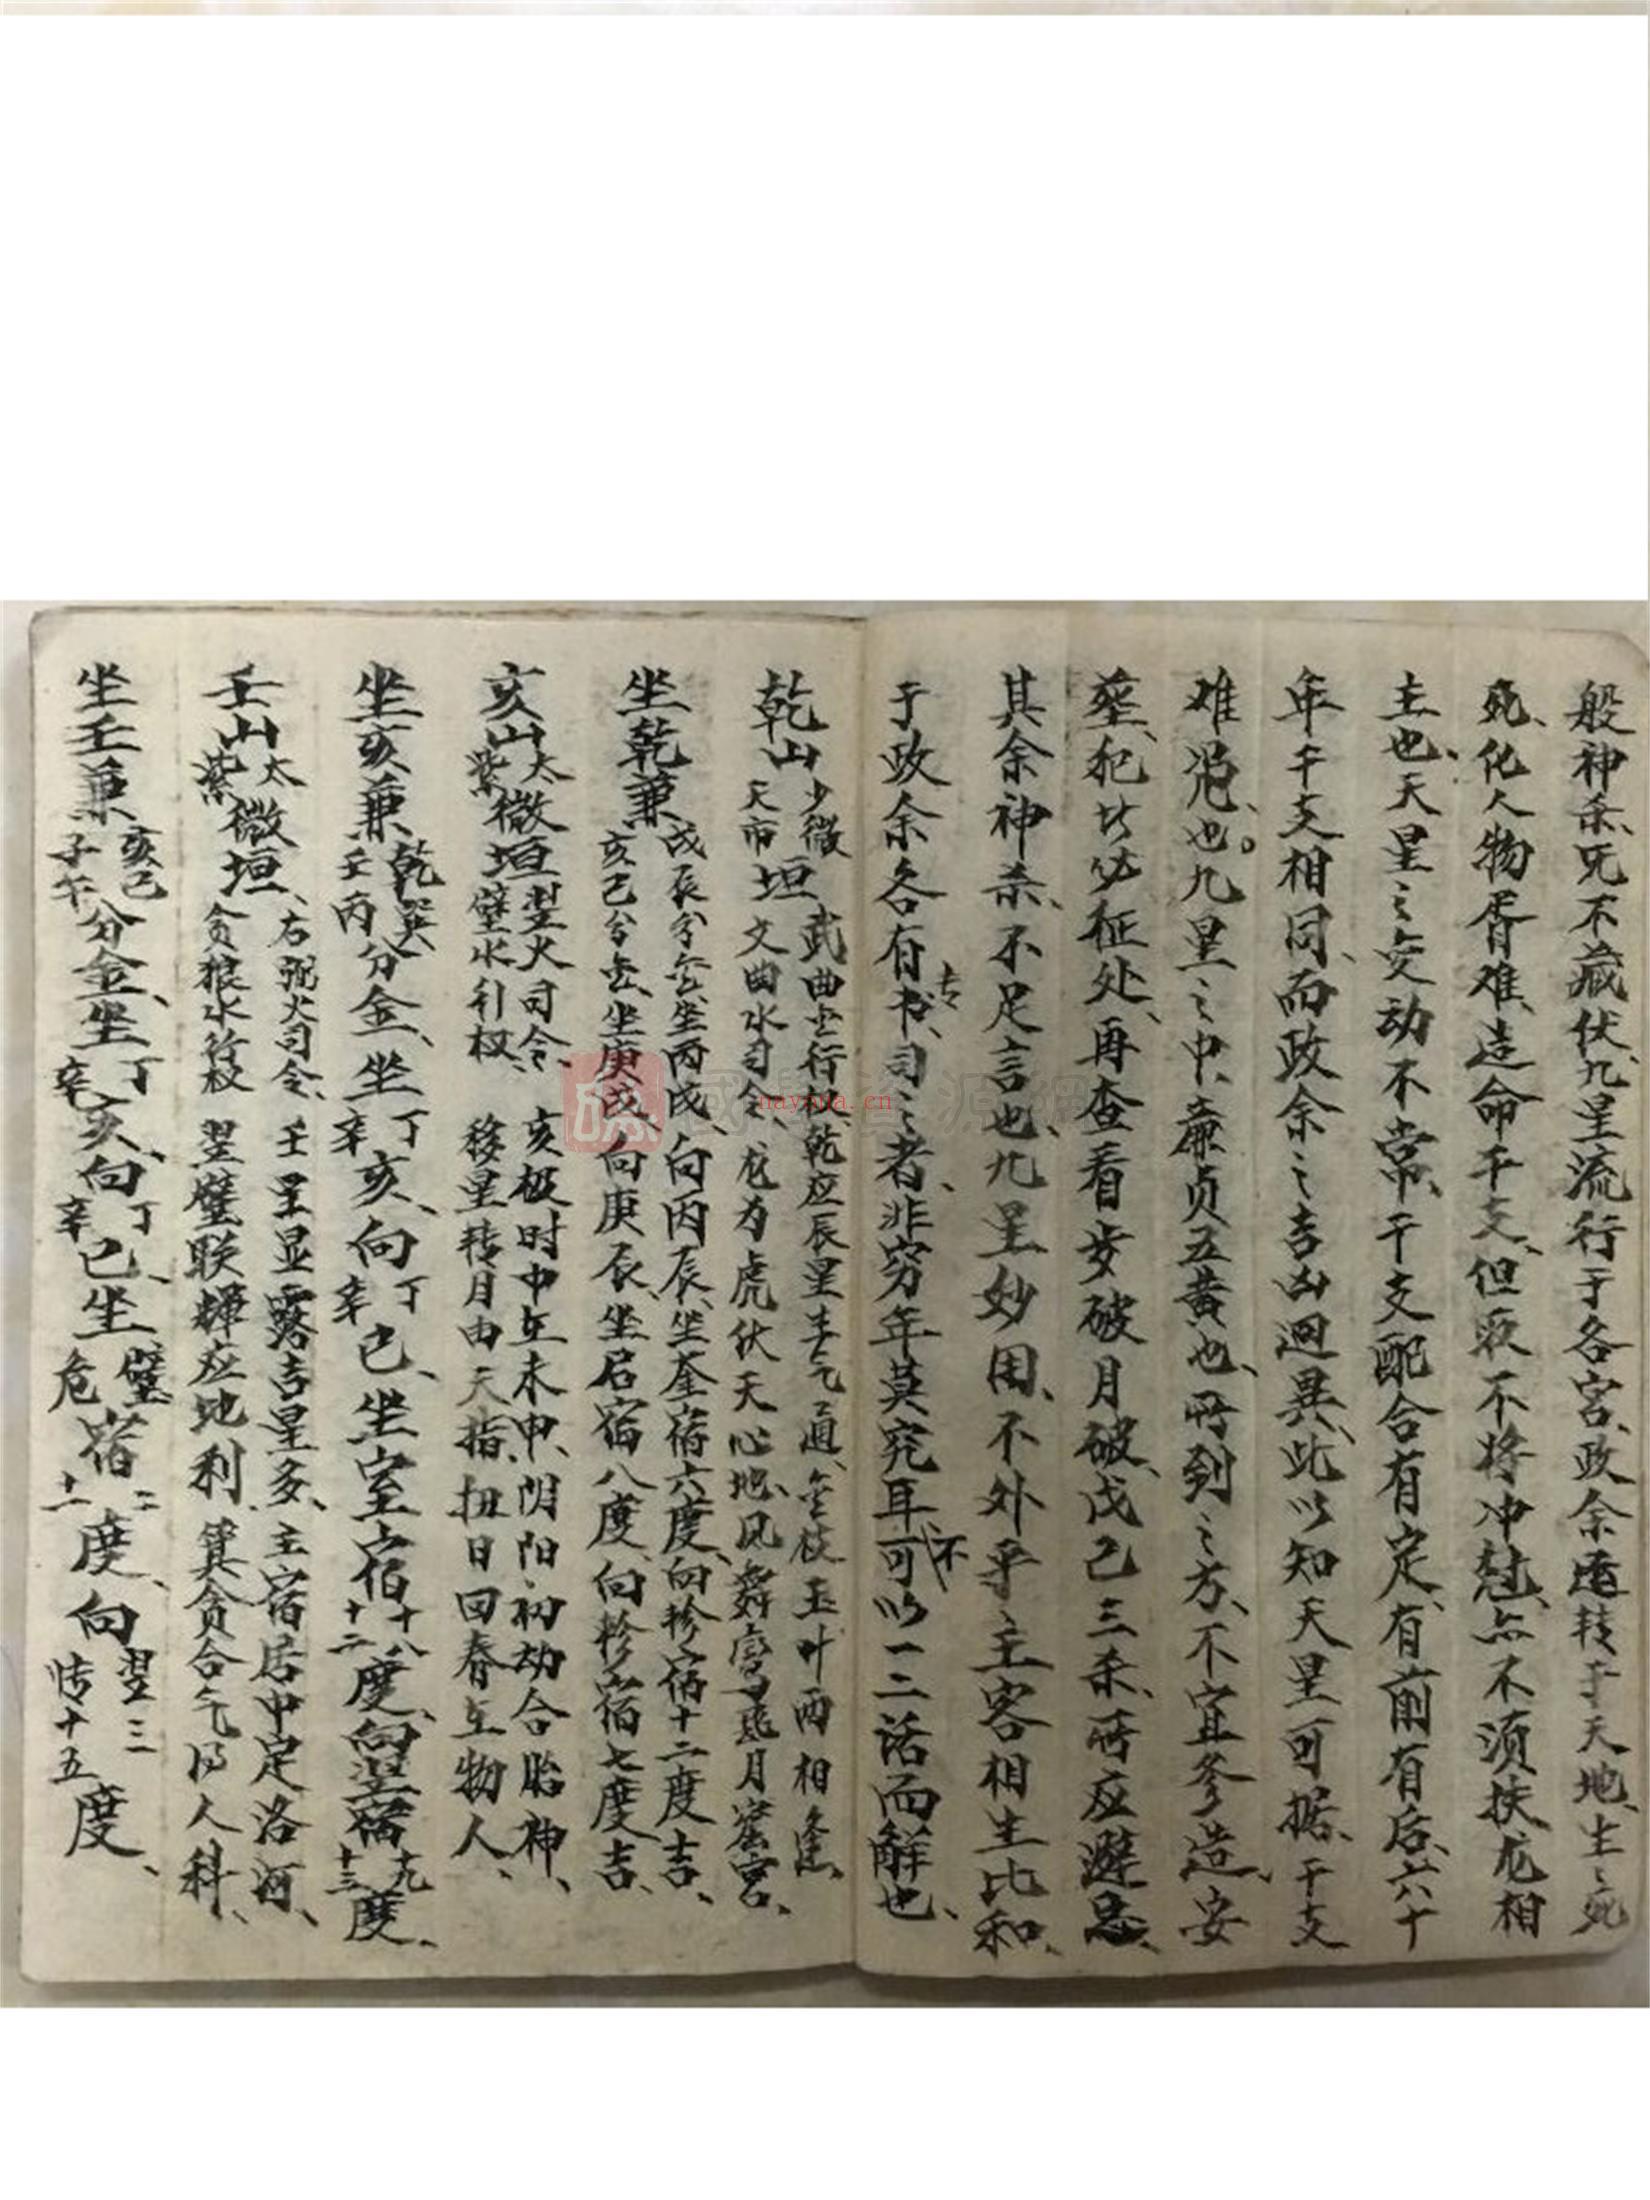 般神杀、咒不藏伏、九星流行于各宫、政余运转于天地、生〻死
死、化人物胥难、造命干支、但取不将冲怼、亦不须扶龙相
主也、天星〻变动不常、干支配合有定、有前有后、六十
年干支相同、而政余〻吉凶迥異、此以知天星可据、干支
难凭也。九星〻中、廉贞五黄也、所到〻方、不宜修造、安
葬、犯此必征处、再查看岁破月破、戊己三杀、所应避忌、
其余神杀、不足言也、九星妙用、不外乎主客相生比和、
于政余各有专书、司〻者、非穷年莫究耳、不可以一二话而解也、
乾山 少微 天市 垣 武曲金行权、乾应辰星生气通、金枝玉叶两相逢、
文曲水司令、龙为虎伏天心地、凤舞鸾飞月窟宫、
坐乾兼 戌辰分金、坐丙戌、向丙辰、坐奎宿六度、向轸宿十二度吉、
亥巳分金、坐庚戌、向庚辰、坐启宿八度、向轸宿七度吉、
亥山 太 紫 微垣 翌火司令、亥极时中在未申、阴阳初动合胎神、
壁水利权、移星转月由天指、扭日回春在物人、
坐亥兼 乾巽 壬丙 分金、坐 丁 辛 亥、向 丁 辛 巳、坐室宿 十八 十二 度、向翌宿 十九 十三 度、
壬山 太 紫 微垣、右弼火司令、壬星显露吉星多、主宿居中定洛河、
贪狼水行权 翌壁联輝应地利、箕贪合气得人科、
坐壬兼 亥巳 子午 分金、坐 丁 辛 亥、向 丁 辛 巳、坐 壁 危 宿 二 十一 度、向 翌三 十五 度、
nayona.cn